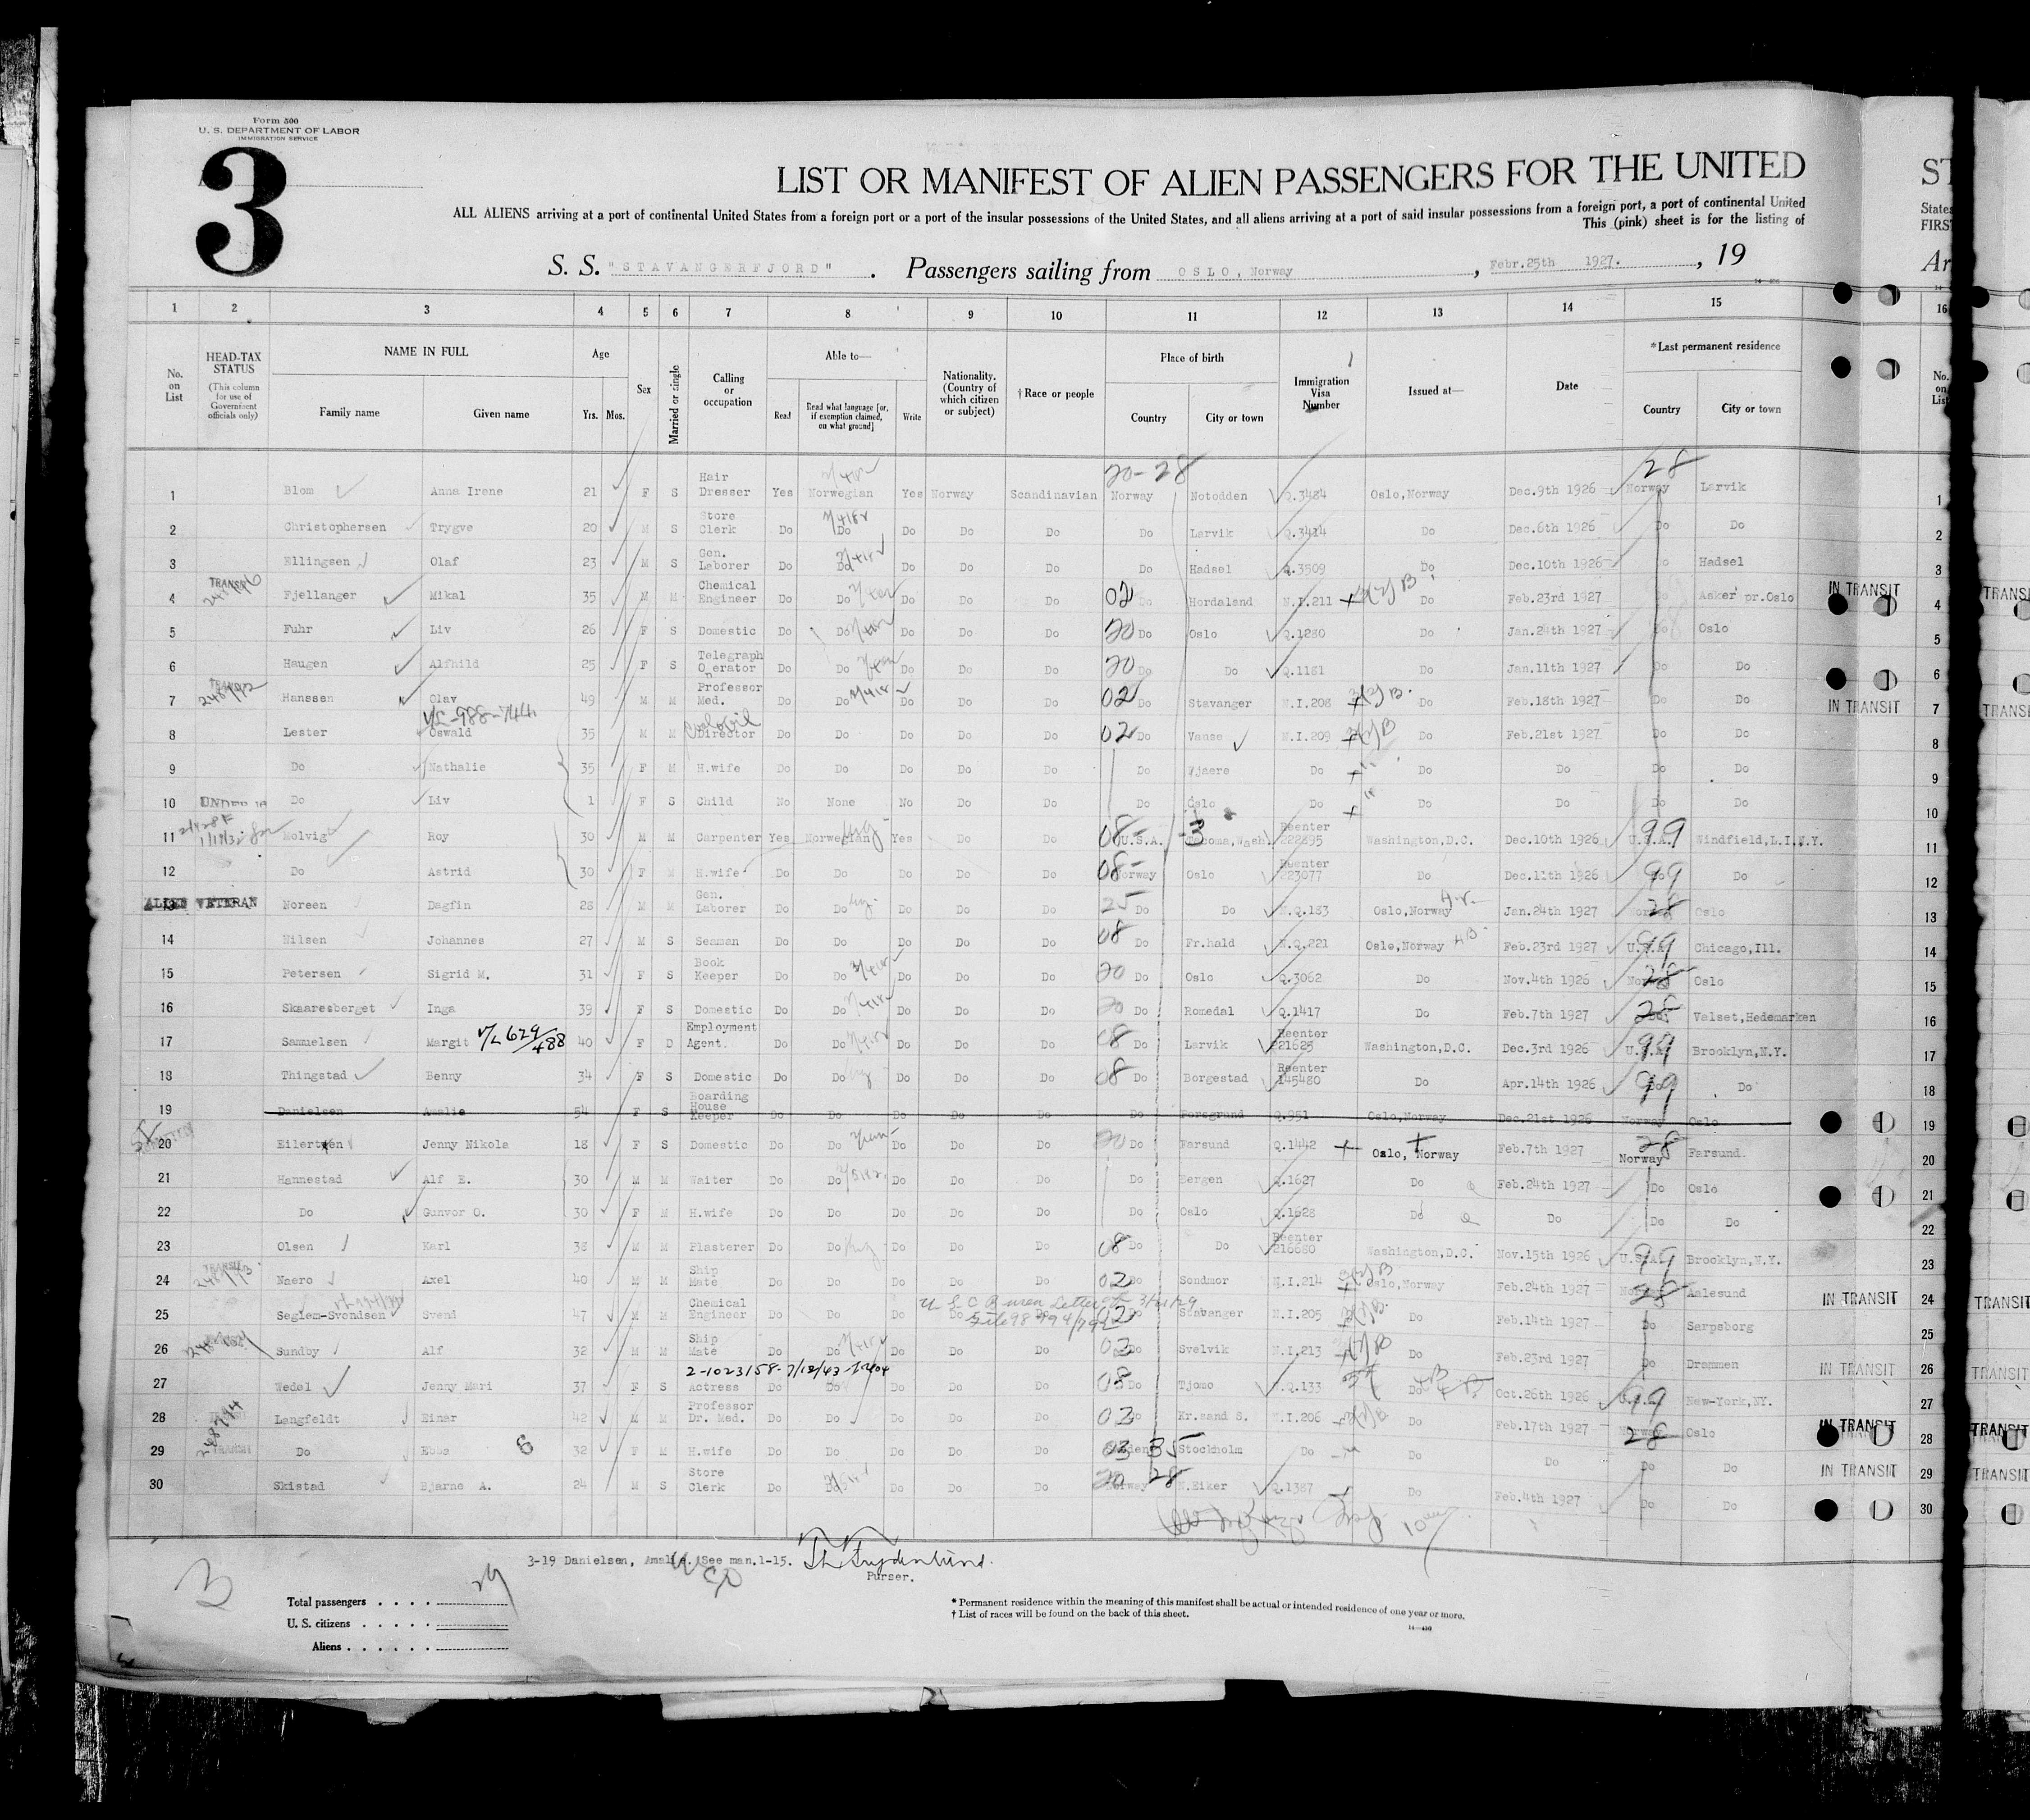 Form 500
U. S. DEPARTMENT OF LABOR
IMMIGRATION SERVICE
3
LIST OR MANIFEST OF ALIEN PASSENGERS FOR THE UNITED
ALL ALIENS arriving at a port of continental United States from a foreign port or a port of the insular possessions of the United States, and all aliens arriving at a port of said insular possessions from a foreign port, a port of continental United
This (pink) sheet is for the listing of
S. S. "STAVANGERFJORD". Passengers sailing from OSLO, Norway, Febr.25th 1927., 19
1 2 3 4 5 6 7 8 9 10 11 12 13 14 15 16
No. on List
HEAD-TAX STATUS (This column for use of Government officials only)
NAME IN FULL Family name Given name
Age Yrs. Mos.
Sex
Married or single
Calling or occupation
Able to— Read Read what language [or, if exemption claimed, on what ground] Write
Nationality. (Country of which citizen or subject)
† Race or people
Place of birth Country City or town
Immigration Visa Number
Issued at—
Date
* Last permanent residence Country City or town
20-28 28
1 Blom Anna Irene 21 F S Hair Dresser Yes Norwegian Yes Norway Scandinavian Norway Notodden Q.3484 Oslo,Norway Dec.9th 1926 Norway Larvik 1
2 Christophersen Trygve 20 M S Store Clerk Do Do Do Do Do Do Larvik Q.3414 Do Dec.6th 1926 Do Do 2
3 Ellingsen Olaf 23 M S Gen. Laborer Do Do Do Do Do Do Hadsel Q.3509 Do Dec.10th 1926 Do Hadsel 3
4 TRANSIT Fjellanger Mikal 35 M M Chemical Engineer Do Do Do Do Do 02 Do Hordaland N.I.211 Do Feb.23rd 1927 Do Asker pr.Oslo IN TRANSIT 4
5 Fuhr Liv 26 F S Domestic Do Do Do Do Do 20 Do Oslo Q.1280 Do Jan.24th 1927 Do Oslo 5
6 Haugen Alfhild 25 F S Telegraph Operator Do Do Do Do Do 20 Do Do Q.1181 Do Jan.11th 1927 Do Do 6
7 TRANSIT Hanssen Olav 49 M M Professor Med. Do Do Do Do Do 02 Do Stavanger N.I.208 Do Feb.18th 1927 Do Do IN TRANSIT 7
V/L-988-744
8 Lester Oswald 35 M M Director Do Do Do Do Do 02 Do Vanse N.I.209 Do Feb.21st 1927 Do Do 8
9 Do Nathalie 35 F M H.wife Do Do Do Do Do Do Tjaere Do Do Do Do Do 9
10 UNDER 16 Do Liv 1 F S Child No None No Do Do Do Oslo Do Do Do Do Do 10
11 Molvig Roy 30 M M Carpenter Yes Norwegian Yes Do Do 08 U.S.A. Tacoma,Wash. Reenter 222895 Washington,D.C. Dec.10th 1926 99 U.S.A. Windfield,L.I.N.Y. 11
12 Do Astrid 30 F M H.wife Do Do Do Do Do 08 Norway Oslo Reenter 223077 Do Dec.11th 1926 99 Do Do 12
13 ALIEN VETERAN Noreen Dagfin 28 M M Gen. Laborer Do Do Do Do Do 25 Do Do N.Q.183 Oslo,Norway Jan.24th 1927 28 Norway Oslo 13
14 Nilsen Johannes 27 M S Seaman Do Do Do Do Do 08 Do Fr.hald N.Q.221 Oslo,Norway Feb.23rd 1927 99 U.S.A. Chicago,Ill. 14
15 Petersen Sigrid M. 31 F S Book Keeper Do Do Do Do Do 20 Do Oslo Q.3062 Do Nov.4th 1926 28 Norway Oslo 15
16 Skaaresberget Inga 39 F S Domestic Do Do Do Do Do 20 Do Romedal Q.1417 Do Feb.7th 1927 28 Do Valset,Hedemarken 16
17 Samuelsen Margit V/L 629/488 40 F D Employment Agent. Do Do Do Do Do 08 Do Larvik Reenter 221625 Washington,D.C. Dec.3rd 1926 99 U.S.A. Brooklyn,N.Y. 17
18 Thingstad Benny 34 F S Domestic Do Do Do Do Do 08 Do Borgestad Reenter 145480 Do Apr.14th 1926 99 Do Do 18
19 Danielsen Amalie 54 F S Boarding House Keeper Do Do Do Do Do Do Porsgrund Q.951 Oslo,Norway Dec.21st 1926 Norway Oslo 19
20 Eilertsen Jenny Nikola 18 F S Domestic Do Do Do Do Do 20 Do Farsund Q.1442 Oslo, Norway Feb.7th 1927 28 Norway Farsund. 20
21 Hannestad Alf E. 30 M M Waiter Do Do Do Do Do Do Bergen Q.1627 Do Feb.24th 1927 Do Oslo 21
22 Do Gunvor O. 30 F M H.wife Do Do Do Do Do Do Oslo Q.1628 Do Do Do Do 22
23 Olsen Karl 38 M M Plasterer Do Do Do Do Do 08 Do Do Reenter 216680 Washington,D.C. Nov.15th 1926 99 U.S.A. Brooklyn,N.Y. 23
24 TRANSIT Naero Axel 40 M M Ship Mate Do Do Do Do Do 02 Do Sondmor N.I.214 Oslo,Norway Feb.24th 1927 28 Norway Aalesund IN TRANSIT 24
25 Seglem-Svendsen Svend 47 M M Chemical Engineer Do Do Do Do Do 02 Do Stavanger N.I.205 Do Feb.14th 1927 Do Sarpsborg 25
26 Sundby Alf 32 M M Ship Mate Do Do Do Do Do 02 Do Svelvik N.I.213 Do Feb.23rd 1927 Do Drammen IN TRANSIT 26
2-1023158-7/12/43
27 Wedel Jenny Mari 37 F S Actress Do Do Do Do Do 08 Do Tjomo N.Q.133 Do Oct.26th 1926 99 U.S.A. New-York,NY. 27
28 Langfeldt Einar 42 M M Professor Dr. Med. Do Do Do Do Do 02 Do Kr.sand S. N.I.206 Do Feb.17th 1927 28 Norway Oslo IN TRANSIT 28
29 TRANSIT Do Ebba 6 32 F M H.wife Do Do Do Do Do 35 Stockholm Do Do Do Do Do IN TRANSIT 29
30 Skistad Bjarne A. 24 M S Store Clerk Do Do Do Do Do 20 28 Norway N.Eiker Q.1387 Do Feb.4th 1927 Do Do 30
3-19 Danielsen, Amalie. See man.1-15.
Purser.
3
Total passengers . . . . 29
U. S. citizens . . . . .
Aliens . . . . . .
* Permanent residence within the meaning of this manifest shall be actual or intended residence of one year or more.
† List of races will be found on the back of this sheet.